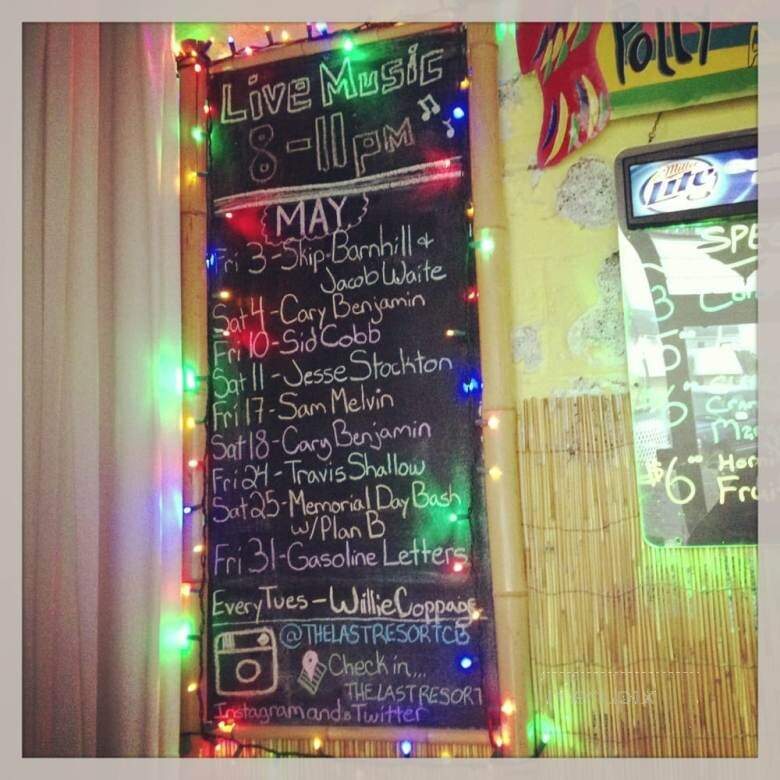 Live Music
8-11pm
MAY
Fri 3-Skip Barnhill &
Jacob Waite
Sat 4-Cary Benjamin
Fri 10-Sid Cobb
Sat 11-Jesse Stockton
Fri 17-Sam Melvin
Sat 18-Cary Benjamin
Fri 24-Travis Shallow
Sat 25-Memorial Day Bash
w/Plan B
Fri 31-Gasoline Letters
Every Tues-Willie Coppage
@THELASTRESORTCB
Check in...
THE LAST RESORT
Instagram and Twitter
Polly
Miller
Lite
SPE
3
5
6
Cra
$6
Hor
Fru